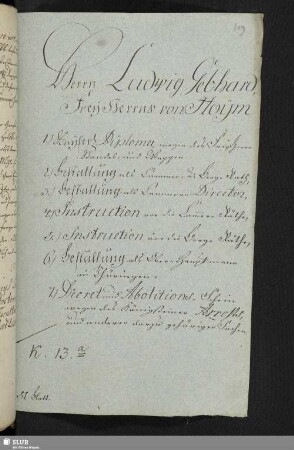 109
Herrn Ludwig Gebhard,
Frey Herrns von Hoijm
1.) Kayserl. Diploma wegen des Freyherrn
Standes und Wappen
2.) Bestallung als Cammer- und Berg-Rath,
3.) Bestallung als Cammer Director,
4.) Instruction vor die Cammer Räthe,
5.) Instruction vor die Berge Räthe,
6.) Bestallung als Ober-Hauptmann
in Thüringen.
7.) Decret und Abolitions-Schein
wegen des Königsteiner Arrests,
und anderer darzu gehöriger Sachen
K. 13.
51 bl.
SLUB